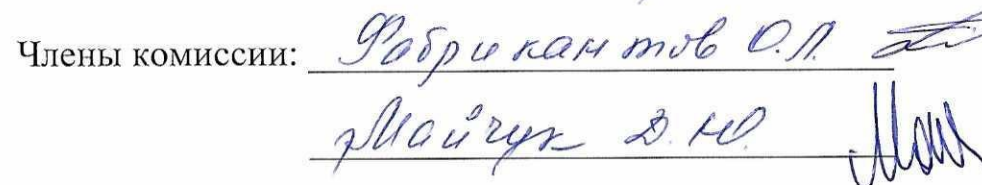 Члены комиссии: Фабрикантов О.Л.
Майчук Д.Ю.